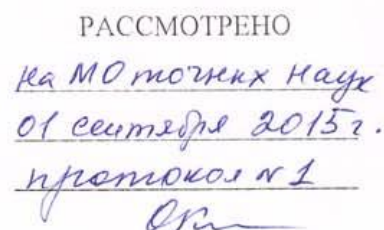 РАССМОТРЕНО
на МО точных наук
01 сентября 2015г.
протокол №1